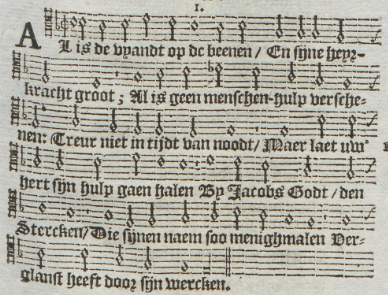 1.
AL is de vyandt op de beenen / En syne heyr-
kracht groot; Al is geen menschen-hulp versche-
nen: Treur niet in tijdt van noodt / Maer laet uw
hert syn hulp gaen halen By Jacobs Godt / den
Stercken / Die synen naem soo menighmalen Ver-
glanst heeft door syn wercken.